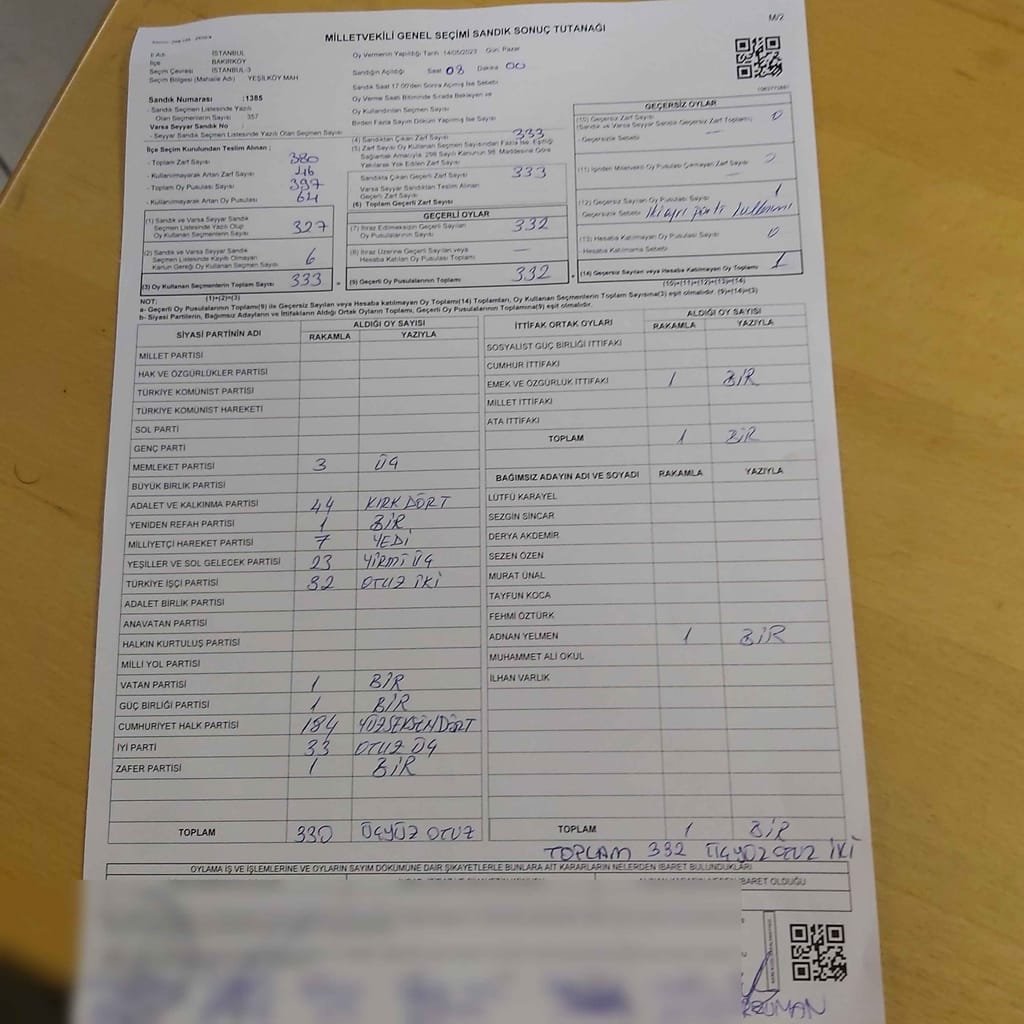 M/2
MİLLETVEKİLİ GENEL SEÇİMİ SANDIK SONUÇ TUTANAĞI
İl Adı : İSTANBUL
İlçe : BAKIRKÖY
Seçim Çevresi : İSTANBUL-3
Seçim Bölgesi (Mahalle Adı) : YEŞİLKÖY MAH
Sandık Numarası : 1385
- Sandık Seçmen Listesinde Yazılı
Olan Seçmenlerin Sayısı : 357
Varsa Seyyar Sandık No :
- Seyyar Sandık Seçmen Listesinde Yazılı Olan Seçmen Sayısı :
İlçe Seçim Kurulundan Teslim Alınan ;
- Toplam Zarf Sayısı 380
- Kullanılmayarak Artan Zarf Sayısı 46
- Toplam Oy Pusulası Sayısı 397
- Kullanılmayarak Artan Oy Pusulası 64
(1) Sandık ve Varsa Seyyar Sandık
Seçmen Listesinde Yazılı Olup
Oy Kullanan Seçmenlerin Sayısı 327
(2) Sandık ve Varsa Seyyar Sandık
Seçmen Listesinde Kayıtlı Olmayan
Kanun Gereği Oy Kullanan Seçmen Sayısı 6
(3) Oy Kullanan Seçmenlerin Toplam Sayısı 333
(1)+(2)=(3)
Oy Vermenin Yapıldığı Tarih 14/05/2023 Gün: Pazar
Sandığın Açıldığı Saat 08 Dakika 00
Sandık Saat 17.00'den Sonra Açılmış İse Sebebi
Oy Verme Saati Bitiminde Sırada Bekleyen ve
Oy Kullandırılan Seçmen Sayısı
Birden Fazla Sayım Döküm Yapılmış İse Sayısı
(4) Sandıktan Çıkan Zarf Sayısı 333
(5) Zarf Sayısı Oy Kullanan Seçmen Sayısından Fazla İse, Eşitliği
Sağlamak Amacıyla, 298 Sayılı Kanunun 98. Maddesine Göre
Yakılarak Yok Edilen Zarf Sayısı
Sandıkta Çıkan Geçerli Zarf Sayısı 333
Varsa Seyyar Sandıktan Teslim Alınan
Geçerli Zarf Sayısı
(6) Toplam Geçerli Zarf Sayısı
GEÇERLİ OYLAR
(7) İtiraz Edilmeksizin Geçerli Sayılan
Oy Pusulalarının Sayısı 332
(8) İtiraz Üzerine Geçerli Sayılan veya
Hesaba Katılan Oy Pusulası Toplamı —
(9) Geçerli Oy Pusulalarının Toplamı 332
GEÇERSİZ OYLAR
(10) Geçersiz Zarf Sayısı
(Sandık ve Varsa Seyyar Sandık Geçersiz Zarf Toplamı) 0
Geçersizlik Sebebi —
(11) İçinden Milletvekili Oy Pusulası Çıkmayan Zarf Sayısı 0
(12) Geçersiz Sayılan Oy Pusulası Sayısı 1
Geçersizlik Sebebi iki ayrı parti kullanımı
(13) Hesaba Katılmayan Oy Pusulası Sayısı 0
Hesaba Katılmama Sebebi
(14) Geçersiz Sayılan veya Hesaba Katılmayan Oy Toplamı 1
(10)+(11)+(12)+(13)=(14)
NOT:
a- Geçerli Oy Pusulalarının Toplamı(9) ile Geçersiz Sayılan veya Hesaba katılmayan Oy Toplamı(14) Toplamları, Oy Kullanan Seçmenlerin Toplam Sayısına(3) eşit olmalıdır. (9)+(14)=(3)
b- Siyasi Partilerin, Bağımsız Adayların ve İttifakların Aldığı Ortak Oyların Toplamı, Geçerli Oy Pusulalarının Toplamına(9) eşit olmalıdır.
SİYASİ PARTİNİN ADI ALDIĞI OY SAYISI
RAKAMLA YAZIYLA
MİLLET PARTİSİ
HAK VE ÖZGÜRLÜKLER PARTİSİ
TÜRKİYE KOMÜNİST PARTİSİ
TÜRKİYE KOMÜNİST HAREKETİ
SOL PARTİ
GENÇ PARTİ
MEMLEKET PARTİSİ 3 ÜÇ
BÜYÜK BİRLİK PARTİSİ
ADALET VE KALKINMA PARTİSİ 44 KIRK DÖRT
YENİDEN REFAH PARTİSİ 1 BİR
MİLLİYETÇİ HAREKET PARTİSİ 7 YEDİ
YEŞİLLER VE SOL GELECEK PARTİSİ 23 YİRMİ ÜÇ
TÜRKİYE İŞÇİ PARTİSİ 32 OTUZ İKİ
ADALET BİRLİK PARTİSİ
ANAVATAN PARTİSİ
HALKIN KURTULUŞ PARTİSİ
MİLLİ YOL PARTİSİ
VATAN PARTİSİ 1 BİR
GÜÇ BİRLİĞİ PARTİSİ 1 BİR
CUMHURİYET HALK PARTİSİ 184 YÜZSEKSENDÖRT
İYİ PARTİ 33 OTUZ ÜÇ
ZAFER PARTİSİ 1 BİR
TOPLAM 330 ÜÇYÜZ OTUZ
İTTİFAK ORTAK OYLARI ALDIĞI OY SAYISI
RAKAMLA YAZIYLA
SOSYALİST GÜÇ BİRLİĞİ İTTİFAKI
CUMHUR İTTİFAKI
EMEK VE ÖZGÜRLÜK İTTİFAKI 1 BİR
MİLLET İTTİFAKI
ATA İTTİFAKI
TOPLAM 1 BİR
BAĞIMSIZ ADAYIN ADI VE SOYADI RAKAMLA YAZIYLA
LÜTFÜ KARAYEL
SEZGİN SİNCAR
DERYA AKDEMİR
SEZEN ÖZEN
MURAT ÜNAL
TAYFUN KOCA
FEHMİ ÖZTÜRK
ADNAN YELMEN 1 BİR
MUHAMMET ALİ OKUL
İLHAN VARLIK
TOPLAM 1 BİR
TOPLAM 332 ÜÇYÜZ OTUZ İKİ
OYLAMA İŞ VE İŞLEMLERİNE VE OYLARIN SAYIM DÖKÜMÜNE DAİR ŞİKAYETLERLE BUNLARA AİT KARARLARIN NELERDEN İBARET BULUNDUKLARI
İBARET OLDUĞU